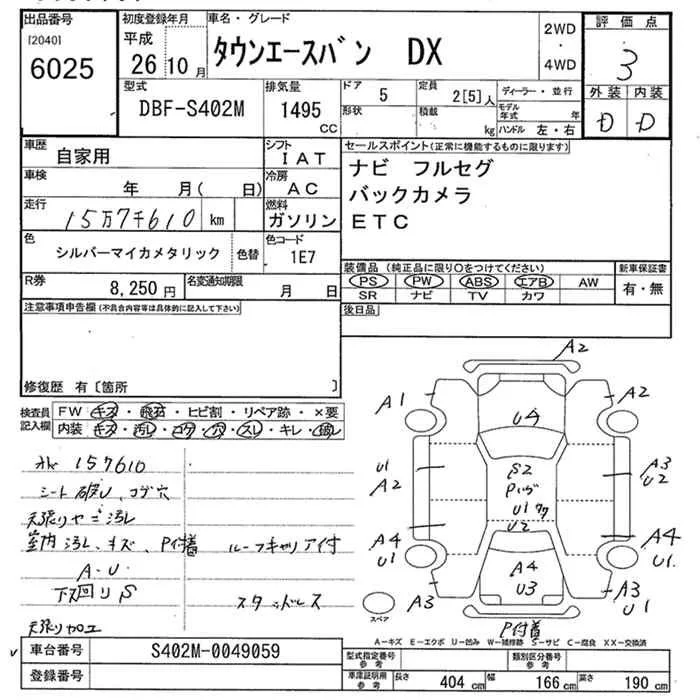 出品番号 初度登録年月 車名・グレード 2WD・4WD 評価点
[2040] 6025 平成26 10月 タウンエースバン DX 3
型式 排気量 ドア 5 定員 2[5]人 ディーラー・並行 外装 内装
DBF-S402M 1495cc 形状 積載 kg モデル年式 年 ハンドル 左・右 D D
車歴 自家用 シフト IAT セールスポイント(正常に機能するものに限ります)
車検 年 月( 日) 冷房 AC ナビ フルセグ
走行 15万7千610 km 燃料 ガソリン バックカメラ
色 シルバーマイカメタリック 色替 色コード 1E7 ETC
R券 8,250円 名変通知期限 月 日
装備品(純正品に限り〇をつけてください) 新車保証書
PS PW ABS エアB AW 有・無
SR ナビ TV カワ
注意事項申告欄(不具合内容等は具体的に記入して下さい) 後日品
修復歴 有〔箇所 〕
検査員記入欄 FW キズ・飛石・ヒビ割・リペア跡・×要
内装 キズ・汚レ・コゲ・穴・スレ・キレ・破レ
157610
シート破レ、コゲ穴
天張リヤニ汚レ
室内汚レ、キズ、P付着 ルーフキャリア付
A・U
下回りS スタッドレス
天張リ加工
A2
A1 U4 A2
U1 S2 A3
A2 U1 U2
U2
A4 A4 A4
U1 U3 U1
A3 A3
U1
スペア P付着
A-キズ E-エクボ U-凹み W-補修跡 S-サビ C-腐食 XX-交換済
車台番号 S402M-0049059 型式指定番号 参考 類別区分番号 参考
登録番号 車庫証明用 参考 長さ 404 cm 幅 166 cm 高さ 190 cm